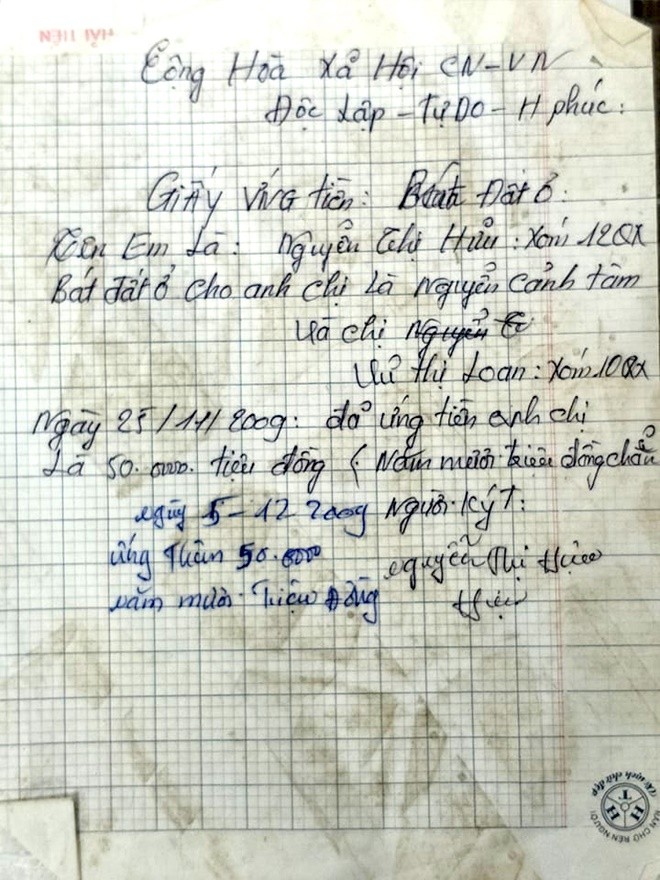 HẢI TIẾN
Cộng Hòa Xả Hội CN-VN
Độc Lập - Tự Do - H phúc:
GiẤy ỨNG tiền: Bán Đất ở:
Tên Em Là: Nguyển Thị Hửu: Xóm 12QX
Bát đất ở cho anh chị Là Nguyển Cảnh tâm
Và chị Nguyển
Vủ thị Loan: Xóm 10QX
Ngày 25/11/2009: đả ứng tiền anh chị
Là 50.000. tiệu đồng ( Năm mươi triệu đồng chẳn
ngày 5-12 2009 Người Ký T:
ứng Thêm 50.0000 nguyễn Thị Hựu
năm mươi Triệu Đồng Hựu
HT